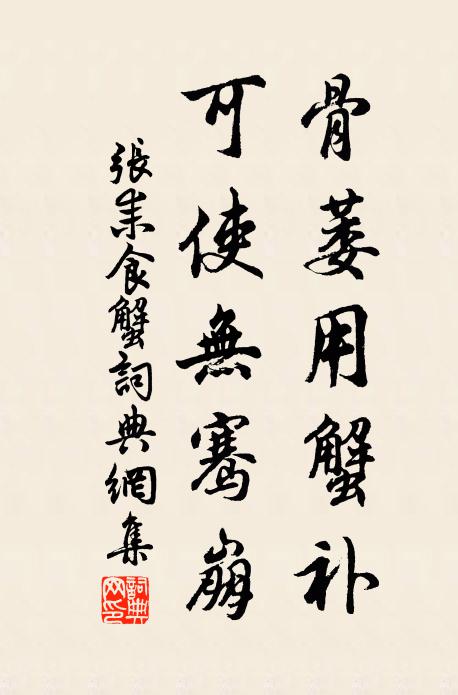 骨萎用蟹补
可使無騫崩
張耒食蟹詞典網集
詞典
网印